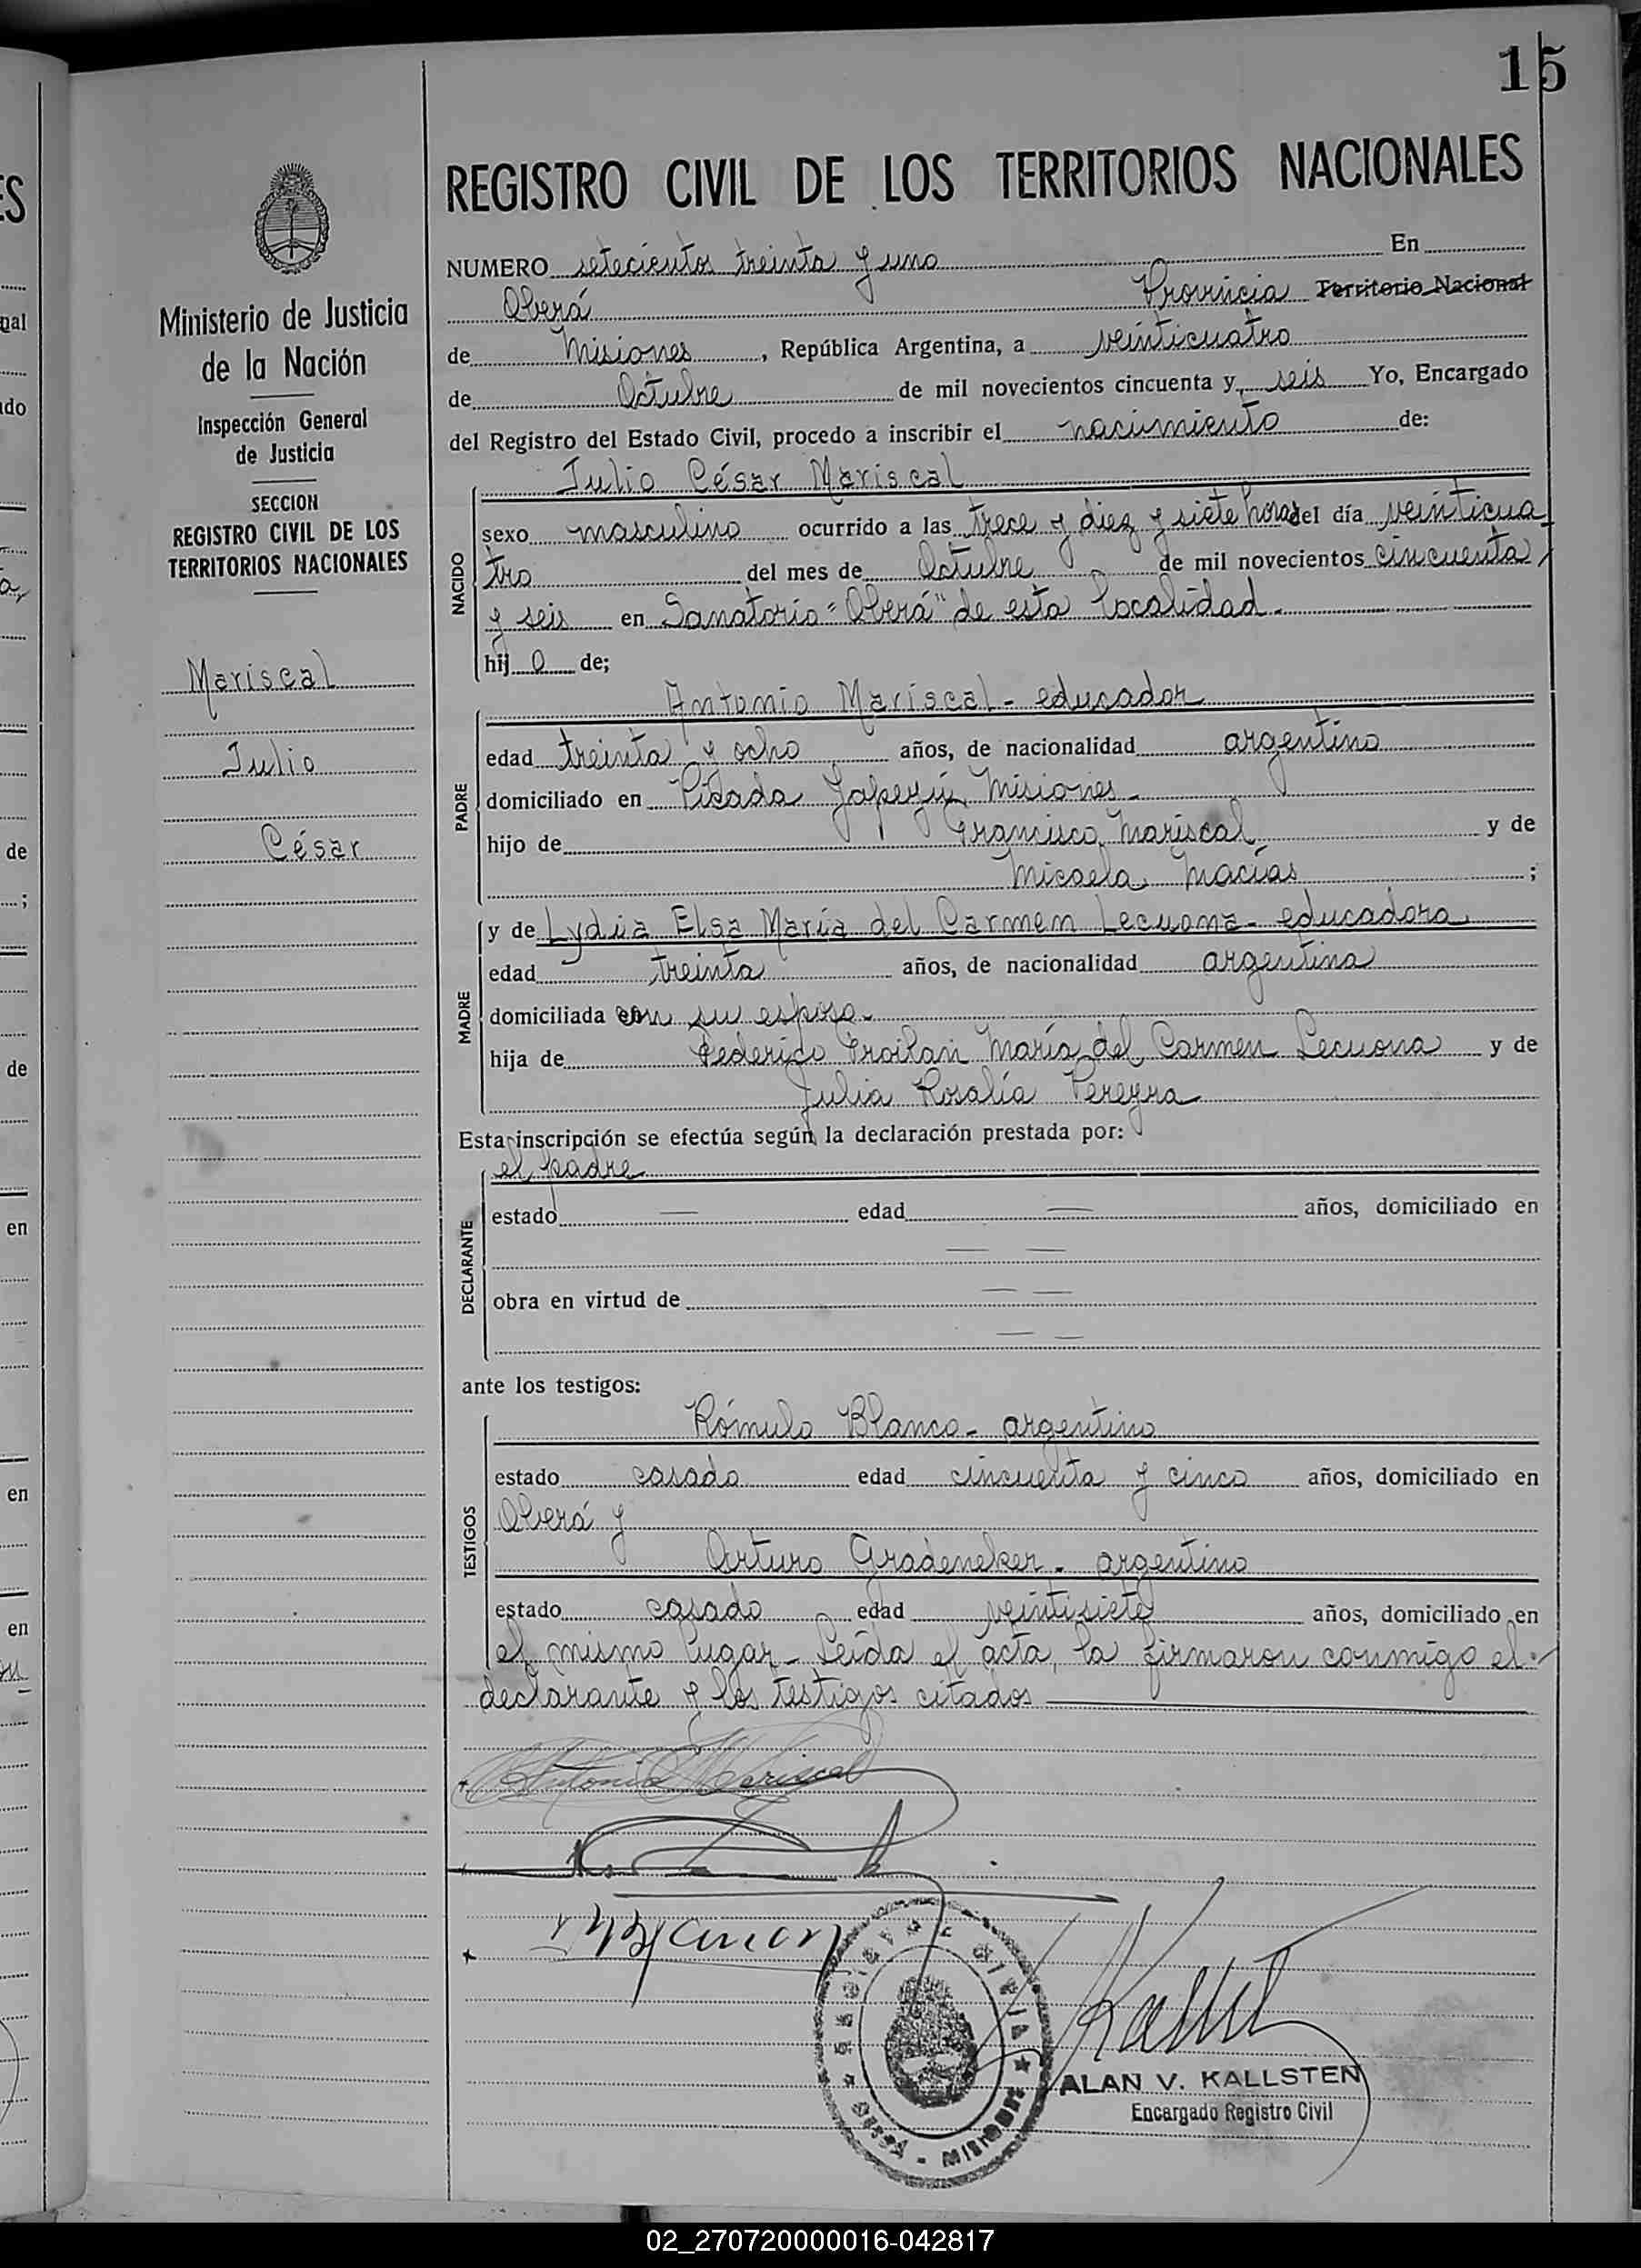 15
REGISTRO CIVIL DE LOS TERRITORIOS NACIONALES
Ministerio de Justicia
de la Nación
Inspección General
de Justicia
SECCION
REGISTRO CIVIL DE LOS
TERRITORIOS NACIONALES
Mariscal
Julio
César
NUMERO setecientos treinta y uno En
Oberá Provincia Territorio Nacional
de Misiones, República Argentina, a veinticuatro
de Octubre de mil novecientos cincuenta y seis Yo, Encargado
del Registro del Estado Civil, procedo a inscribir el nacimiento de:
Julio César Mariscal
NACIDO
sexo masculino ocurrido a las trece y diez y siete horas del día veinticua
tro del mes de Octubre de mil novecientos cincuenta
y seis en Sanatorio "Oberá" de esta localidad.
hij o de;
Antonio Mariscal - educador
PADRE
edad treinta y ocho años, de nacionalidad argentino
domiciliado en Picada Yapeyú, Misiones
hijo de Francisco Mariscal y de
Micaela Macías ;
MADRE
y de Lydia Elsa María del Carmen Lecuona - educadora
edad treinta años, de nacionalidad argentina
domiciliada con su esposo
hija de Federico Froilán María del Carmen Lecuona y de
Julia Rosalía Pereyra
Esta inscripción se efectúa según la declaración prestada por:
el padre
DECLARANTE
estado — edad — años, domiciliado en
— —
obra en virtud de — —
— —
ante los testigos:
Rómulo Blanco - argentino
TESTIGOS
estado casado edad cincuenta y cinco años, domiciliado en
Oberá y
Arturo Gradeneker - argentino
estado casado edad veintisiete años, domiciliado en
el mismo lugar - Leída el acta, la firmaron conmigo el
declarante y los testigos citados
Antonio Mariscal
Kallst
REGISTRO CIVIL
OBERÁ - MISIONES
ALAN V. KALLSTEN
Encargado Registro Civil
02_270720000016-042817